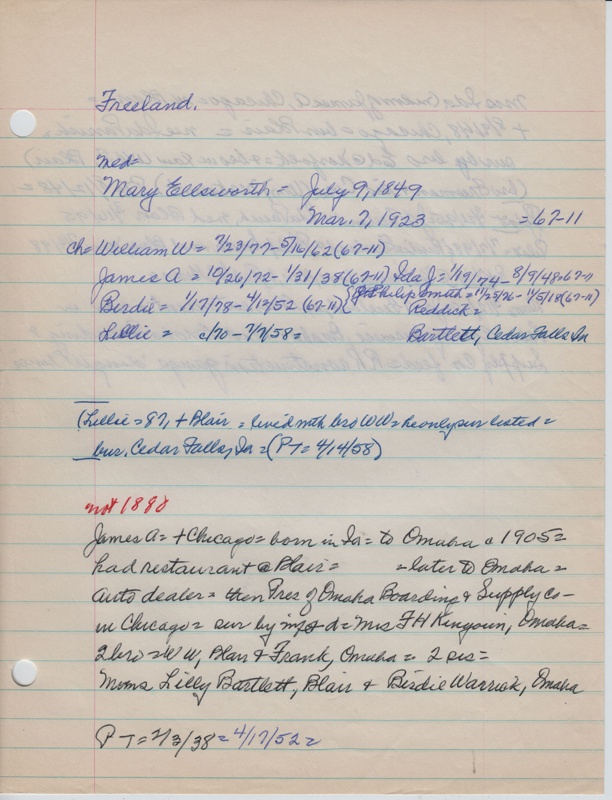 Freeland.
Ned=
Mary Ellsworth = July 9, 1849
Mar. 7, 1923 = 67-11
ch= William W = 7/23/77 - 5/16/62 (67-11)
James A = 10/26/72 - 1/31/38 (67-11) Ida J = 1/19/74 - 8/9/48 = 67-11
Birdie = 1/17/78 - 4/12/52 (67-11) { Philip Smith = 11/25/76 - 1/5/18 (67-11)
Reddick =
Lillie = c/70 - 7/7/58 = Bartlett, Cedar Falls Ia
(Lillie = 87, + Blair = lived with bro WW = he only sur listed =
bur. Cedar Falls, Ia = (PT = 4/14/58)
not 1890
James A = + Chicago = born in Ia = to Omaha c 1905 =
had restaurant @ Blair = = later to Omaha =
auto dealer = then Pres of Omaha Boarding & Supply Co -
in Chicago = sur by d = Mrs F H , Omaha =
2 bro = W W, Blair & Frank, Omaha = 2 sis =
Mmes Lilly Bartlett, Blair & Birdie Warrick, Omaha
PT = 2/3/38 = 4/17/52 =